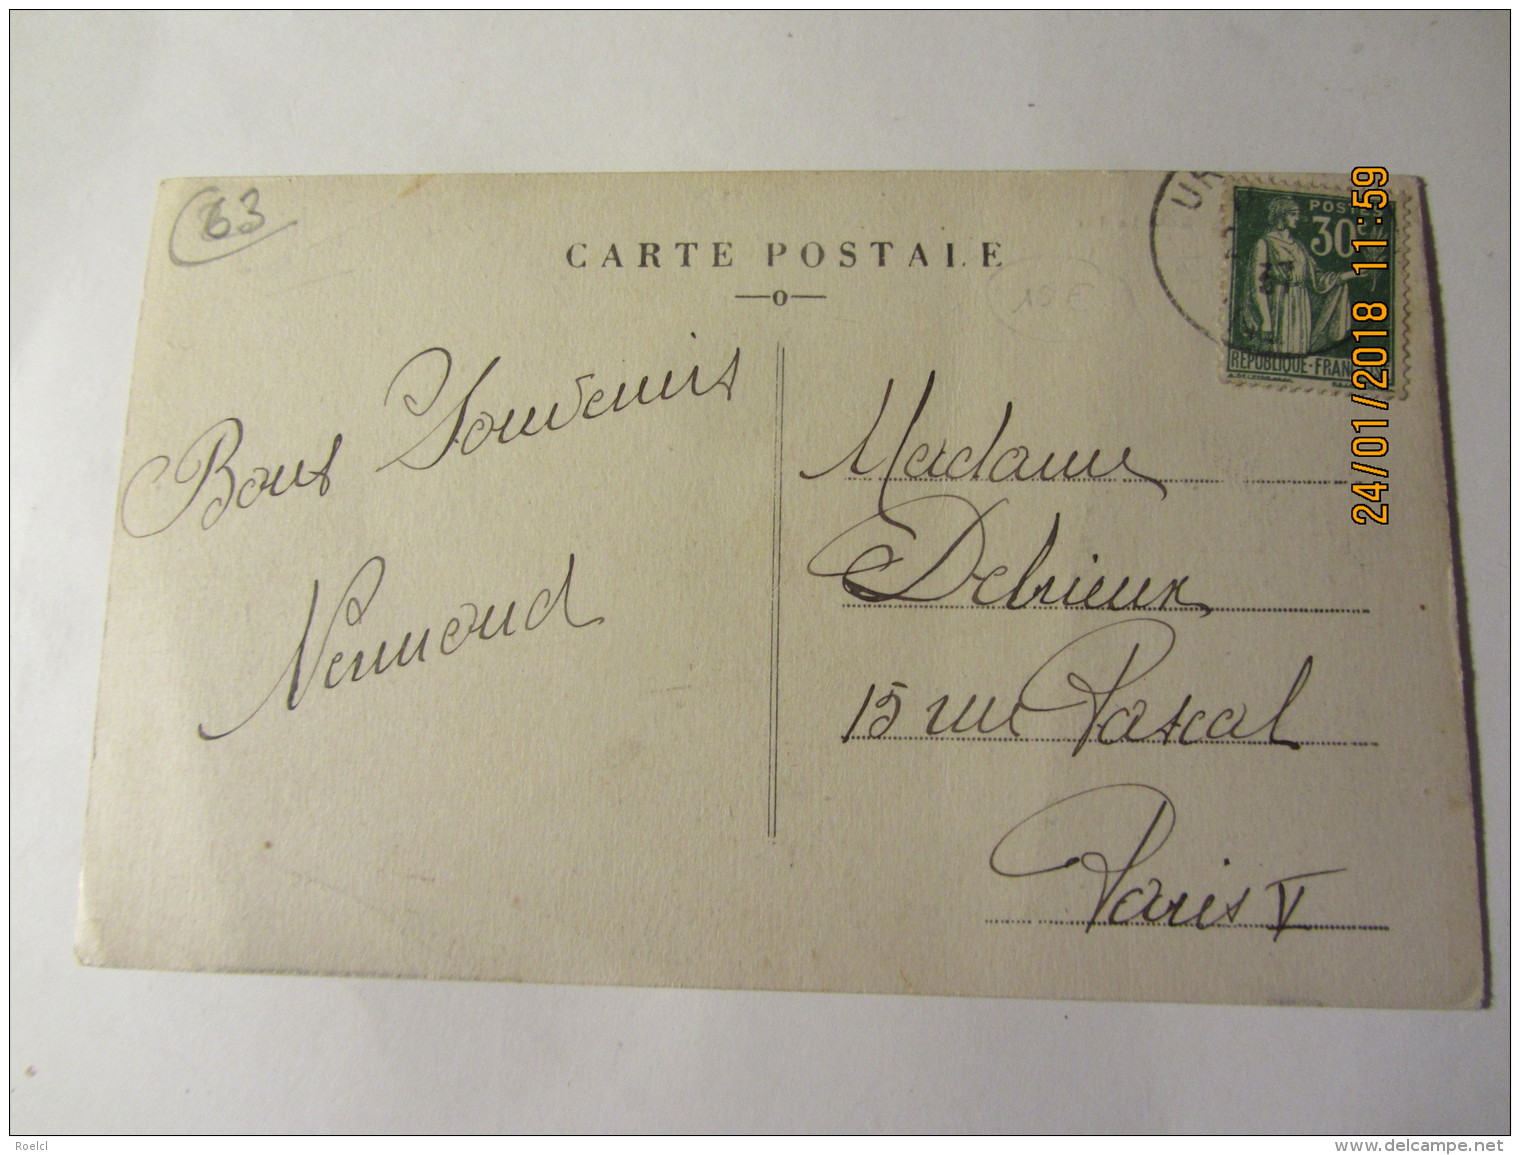 63
CARTE POSTALE
POSTES
30c
RÉPUBLIQUE-FRANÇAISE
37
24/01/2018 11:59
Bons Souvenirs
Madame
Debrieux
15 rue Pascal
Paris V
Roelcl
www.delcampe.net